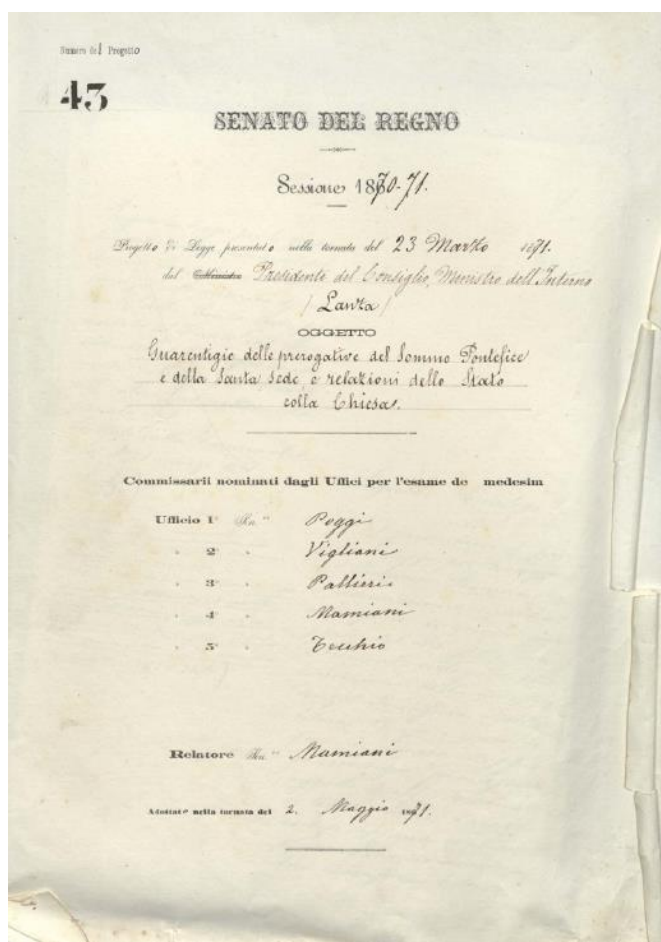 Numero del Progetto
43
SENATO DEL REGNO
Sessione 1870-71.
Progetto di Legge presentato nella tornata del 23 Marzo 1871.
dal Ministro Presidente del Consiglio, Ministro dell'Interno
(Lanza)
OGGETTO
Guarentigie delle prerogative del Sommo Pontefice
e della Santa Sede, e relazioni dello Stato
colla Chiesa.
Commissarii nominati dagli Uffici per l'esame de medesim
Ufficio 1° Sen.re Poggi
" 2° " Vigliani
" 3° " Pallieri
" 4° " Mamiani
" 5° " Tecchio
Relatore Sen.re Mamiani
Adottato nella tornata del 2. Maggio 1871.